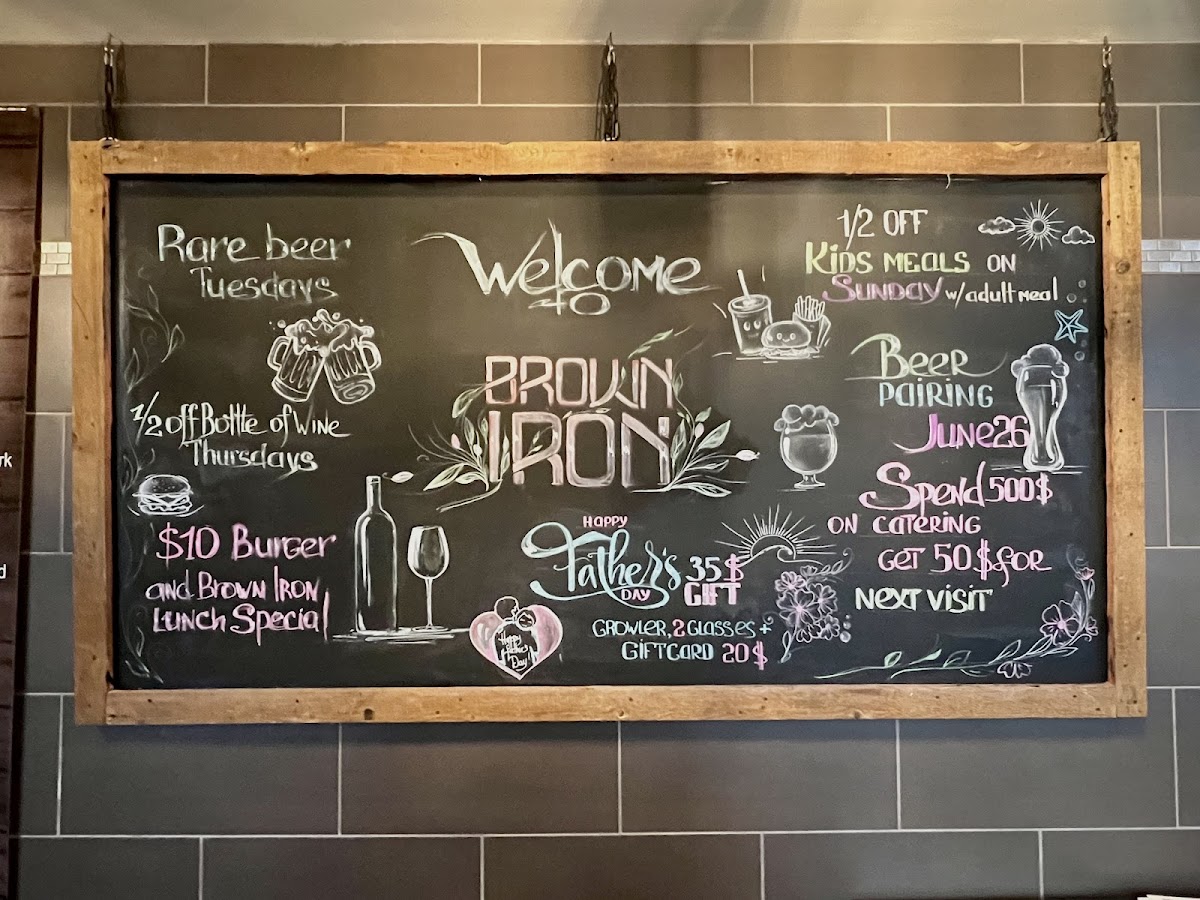 Rare beer
Tuesdays
1/2 off Bottle of Wine
Thursdays
$10 Burger
and Brown Iron
Lunch Special
Welcome
to
BROWN
IRON
HAPPY
Father's
DAY
35$
GIFT
GROWLER, 2 GLASSES +
GIFTCARD 20$
Happy
Father's
Day!
1/2 OFF
KIDS MEALS ON
SUNDAY w/ adult meal
BEER
PAIRING
June 26
Spend 500$
ON CATERING
GET 50$ FOR
NEXT VISIT
rk
d